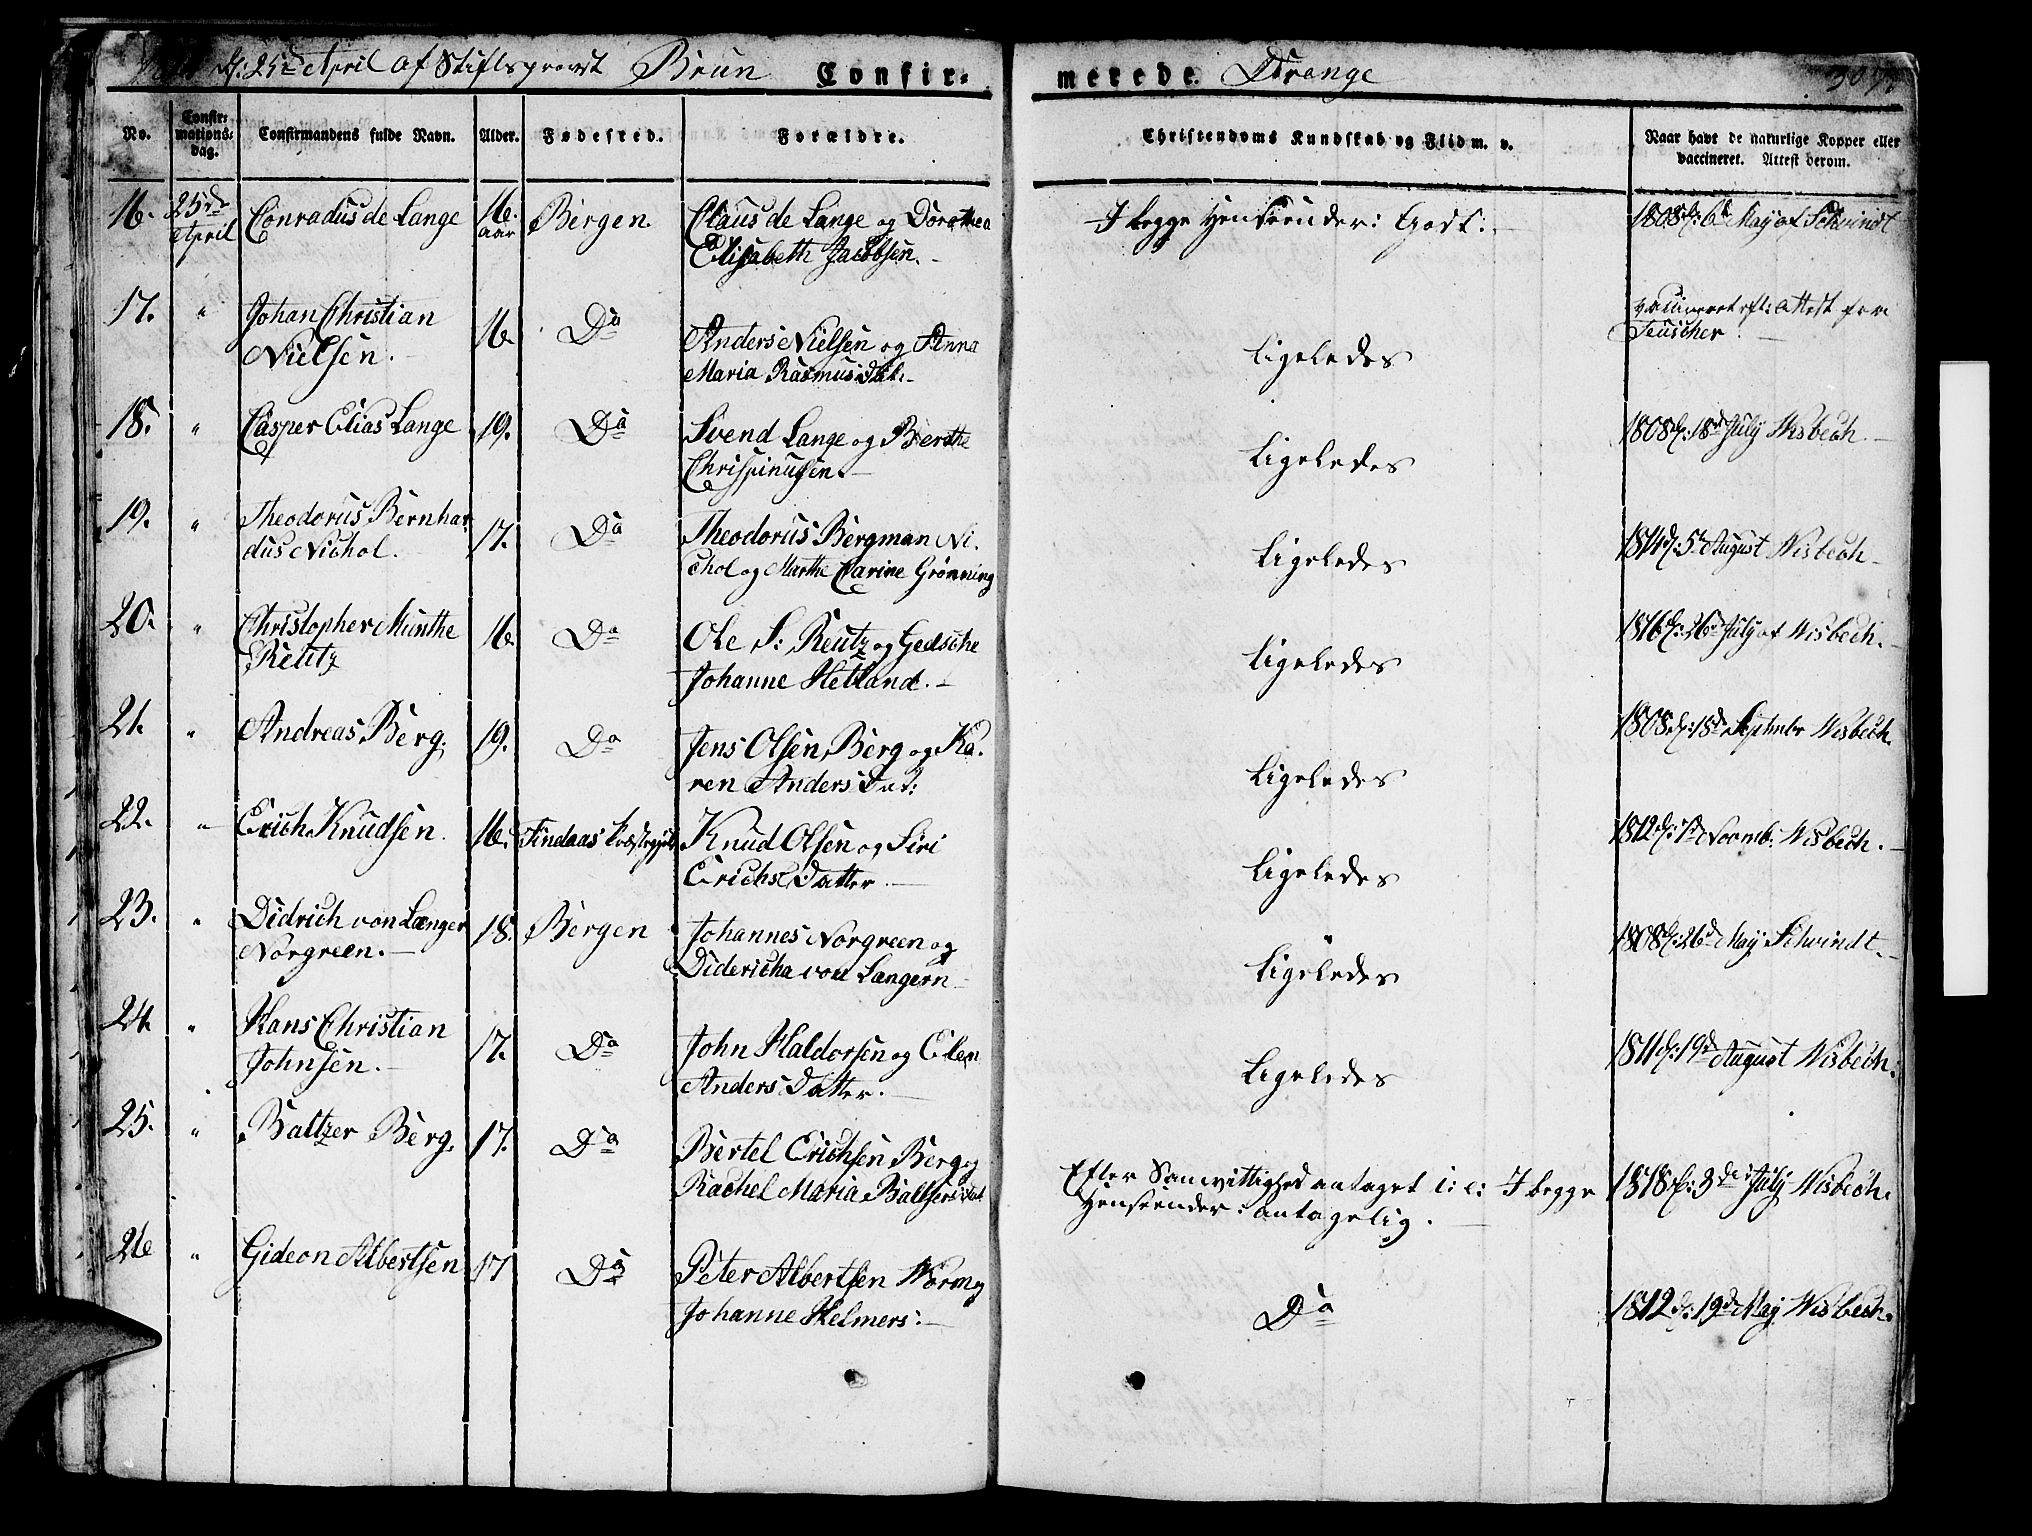 d: 25de April af Stiftsprovst Brun Confir- merede. Drenge 307.
No. Confir-mations-dag. Confirmandens fulde Navn. Alder. Fødested. Forældre. Christendoms Kundskab og Flid m. v. Naar havt de naturlige Kopper eller vaccineret. Attest derom.
16. 25de April Conradus de Lange 16. aar Bergen Claus de Lange og Dorothea I begge Henseender: Godt: 1808 d: 6d May af Schvindt
Elisabeth Jacobsen.
17. " Johan Christian Nielsen. 16. Do Anders Nielsen og Anna Ligeledes vacineret eft: attest fra
Maria Rasmus Dat: Teuscher.
18. " Casper Elias Lange 19. Do Svend Lange og Berthe Ligeledes 1808 d: 18d July Wisbech.
Chrispinusen.
19. " Theodorus Bernhar 17. Do Theodorus Bergman Ni- Ligeledes 1814 d: 5t August Wisbech
dus Nichol. chol og Marthe Carine Grønning
20. " Christopher Munthe 16 Do Ole S: Reutz og Gedsche Ligeledes 1816 d: 26d July af Wisbech.
Reutz Johanne Hetland.
21. " Andreas Berg. 19. Do Jens Olsen Berg og Ka- Ligeledes 1808 d: 15d Septmbr Wisbech.
ren Anders Dat:
22. " Erich Knudsen. 16. Findaas Præstegjeld Knud Olsen og Siri Ligeledes 1812 d: 7d Novemb: Wisbech.
Erichs Datter
23. " Didrich von Længer 18. Bergen Johannes Norgreen og Ligeledes 1808 d: 26d May Schvindt
Norgreen. Didericha von Langern
24. " Hans Christian 17. Do John Haldorsen og Elen Ligeledes 1811 d: 19d August Wisbech.
Johnsen. Anders Datter.
25. " Baltzer Berg. 17. Do Bertel Erichsen Berg og Efter Samvittighed antaget i: e: I begge 1818 d: 3de July Wisbech.
Rachel Maria Baltsers Dat Henseender: antagelig.
26 " Gideon Albertsen 17 Do Peter Albertsen Worm og Do 1812 d: 19d May Wisbech.
Johanne Helmers: